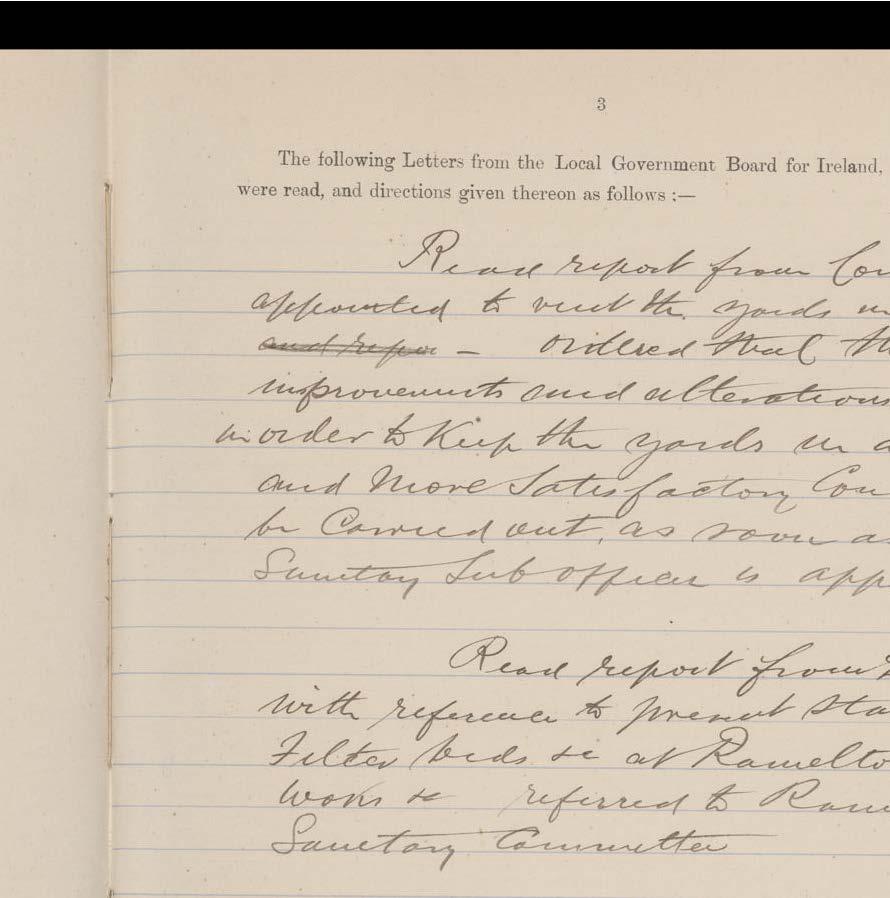 3
The following Letters from the Local Government Board for Ireland,
were read, and directions given thereon as follows :—
Read report from Com
appointed to visit the yards in
and repor — ordered that th
improvements and alterations
in order to Keep the yards in a
and More Satisfactory Con
be Carried out, as soon as
Sanitary Sub officer is app
Read report from
with reference to present Sta
Filter beds &c at Ramelto
Works &c referred to Ram
Sanitary Committee